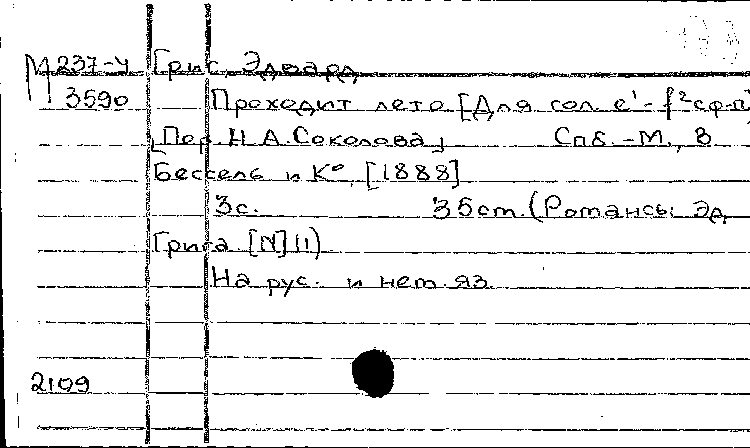 М 237-4 Григ, Эдвард
3590 Проходит лето [Для гол. e'-f² с ф-п]
[Пер. Н.А. Соколова] Спб.-М., В
Бессель и Ко, [1888]
3с. 35см. (Романсы Эд
Грига. [N] 11)
На рус. и нем. яз.
2109